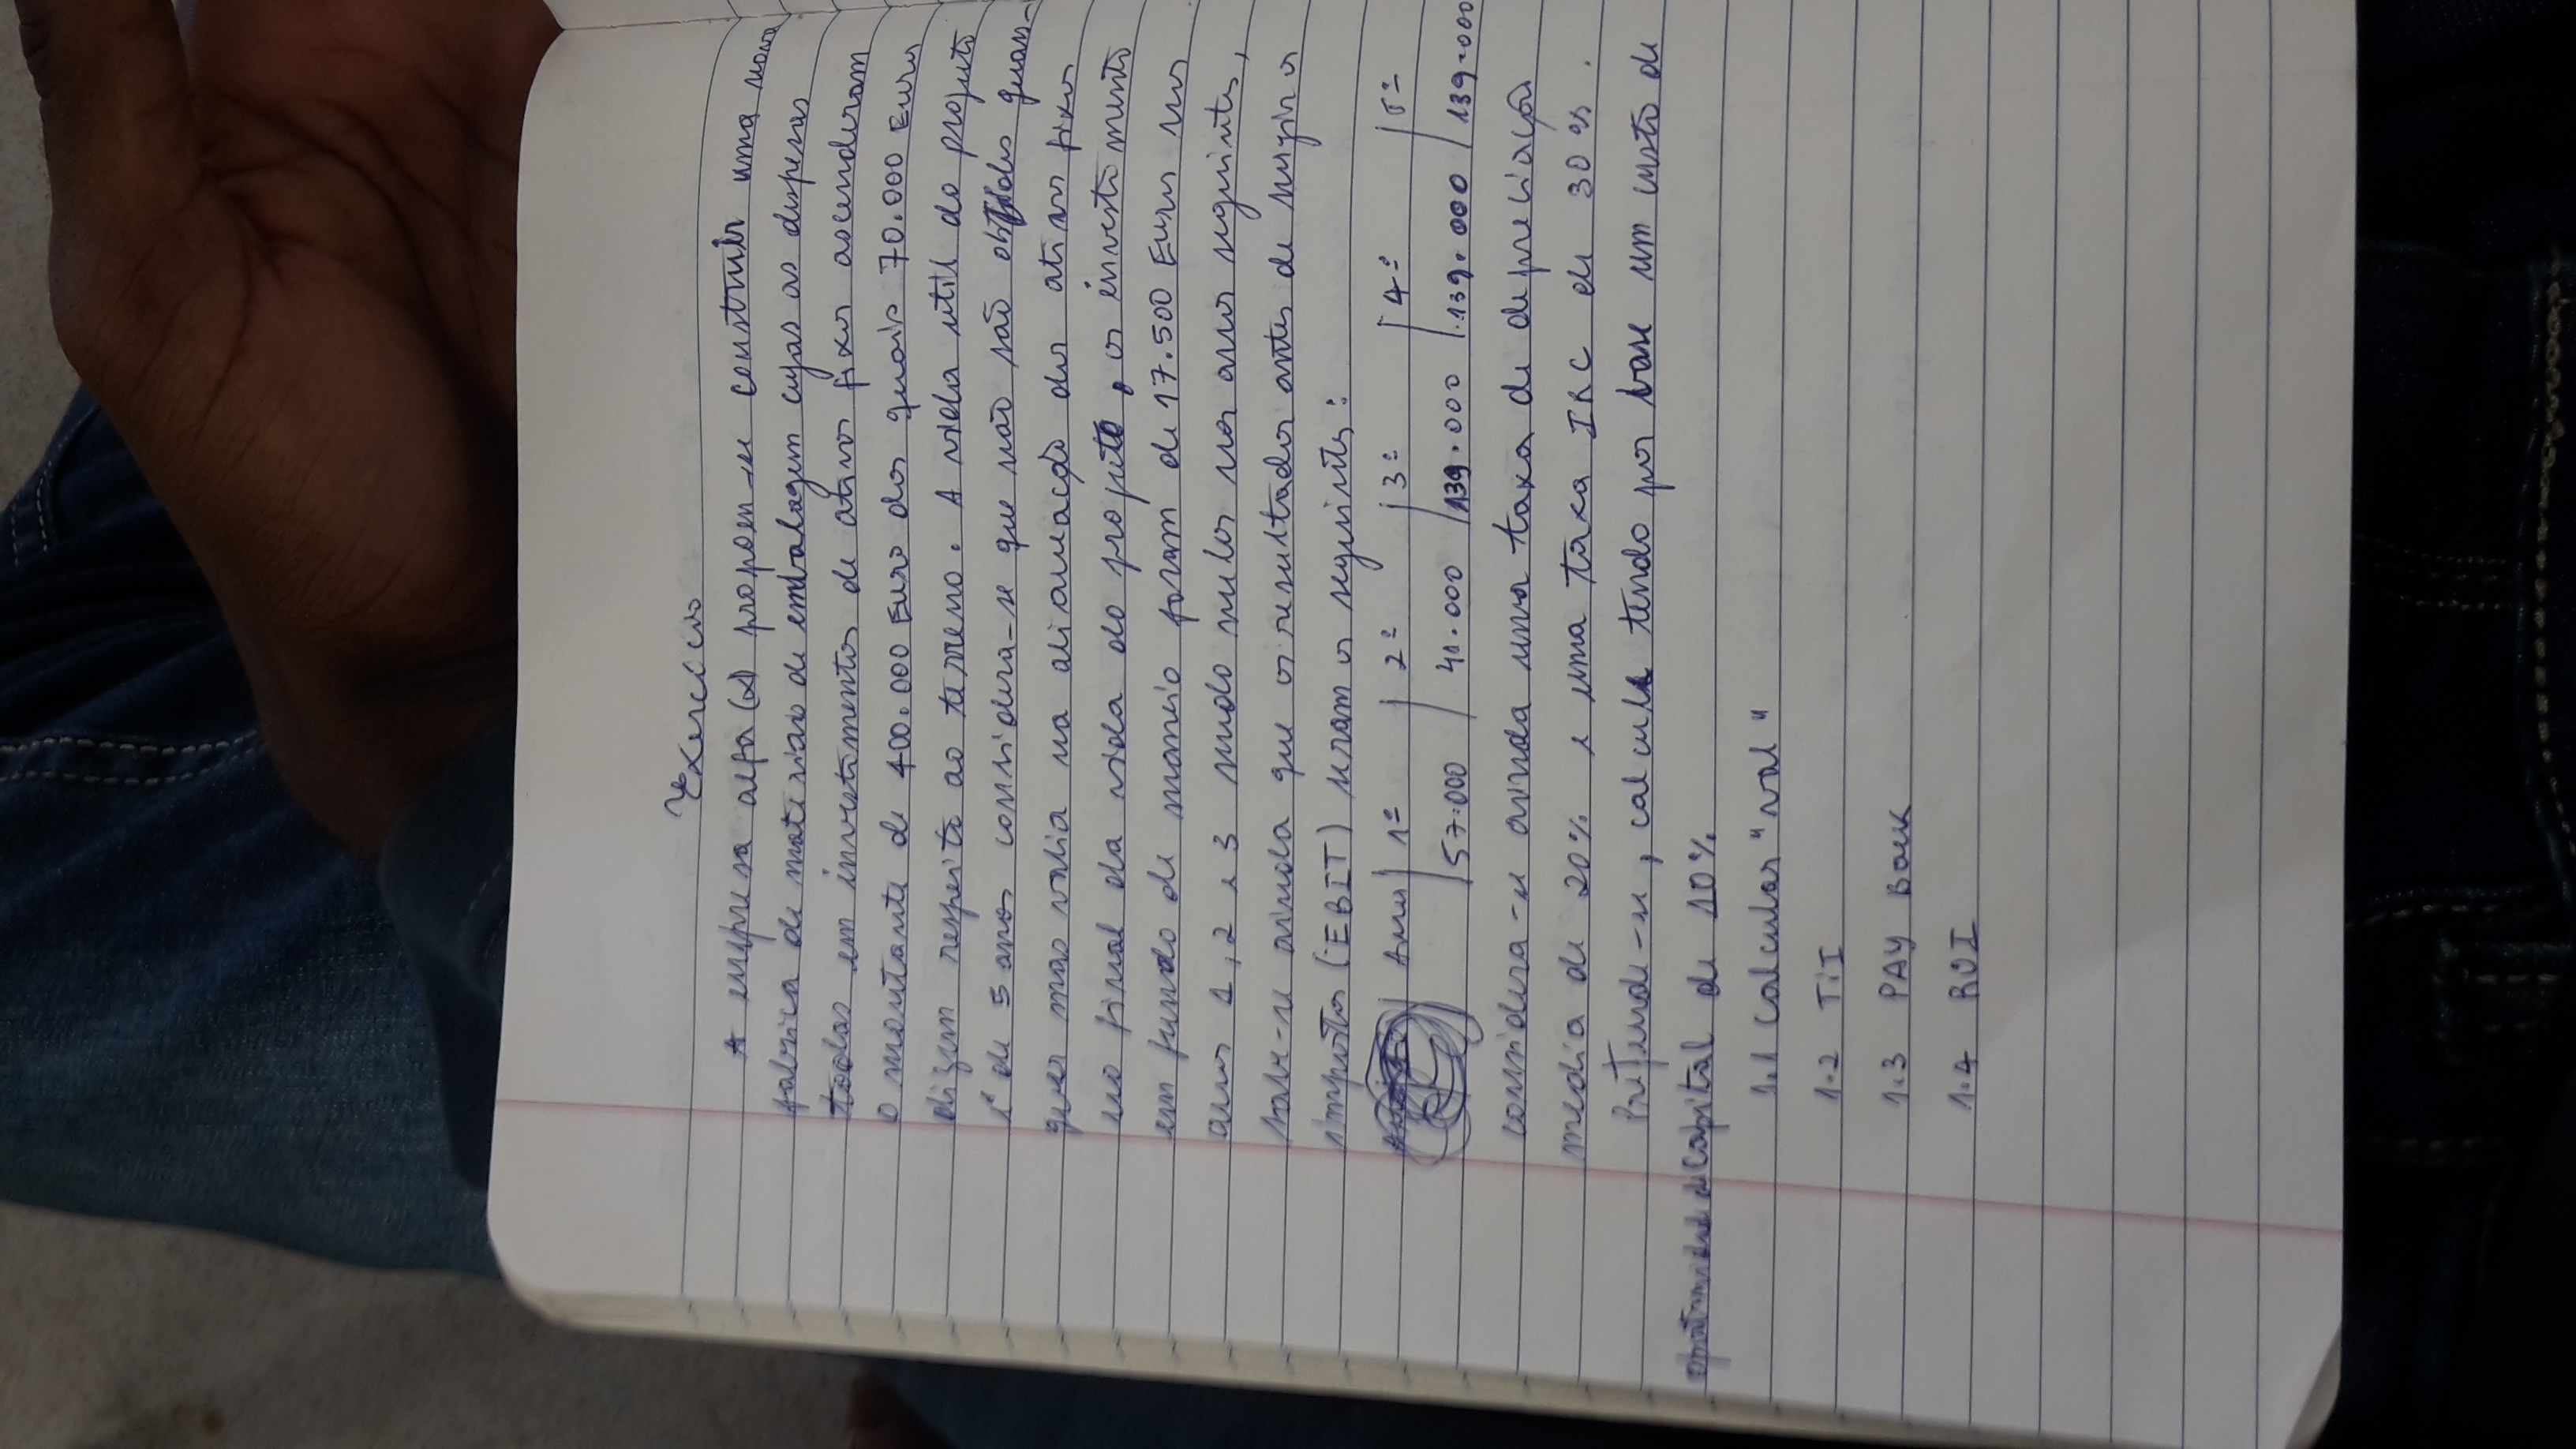 Exercício
A empresa alfa (α) propoem-se construir uma nova
fabrica de materiais de embalagem cujas as despesas
todas em investimentos de ativos fixos ascenderam
o montante de 400.000 Euro dos quais 70.000 Euros
dizem respeito ao terreno. A vida util do projeto
é de 5 anos considera-se que não são obtidos quais-
quer mas valia na alianeação dos ativos fixos
no final da vida do projeto, os investimento
em fundo de maneio foram de 17.500 Euros nos
anos 1, 2 e 3 sendo nulos nos anos seguintes,
sabe-se ainda que os resultados antes de os
impostos (EBIT) seram os seguintes:
Anos | 1º | 2º | 3º | 4º | 5º
57.000 | 41.000 | 139.000 | 139.000 | 139.000
considera-se ainda uma taxa de depreciação
media de 20% e uma taxa IRC de 30%.
Pretende-se, calcule tendo por base um custo de
oportunidade de Capital de 10%
1.1 Calcular "val"
1.2 TiI
1.3 PAY Back
1.4 ROI